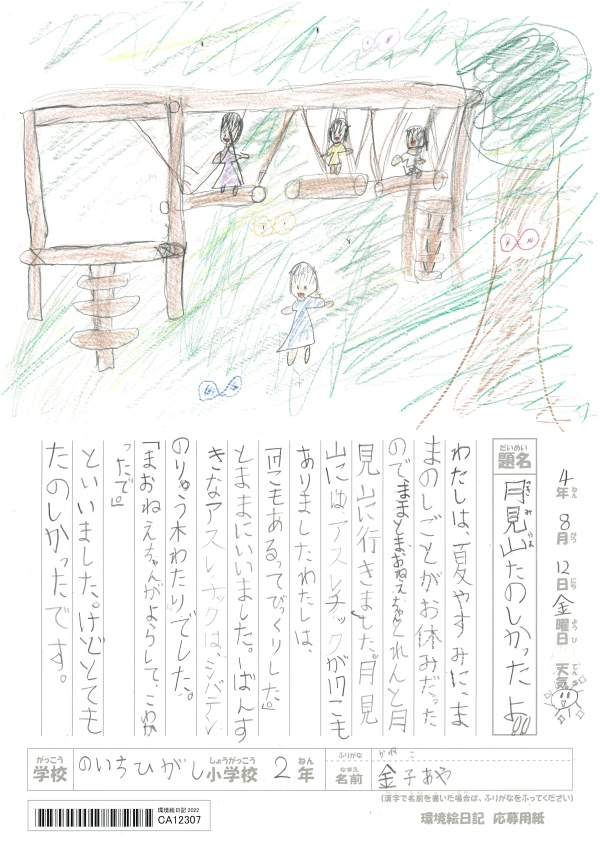 4年ねん 8月がつ 12日にち 金曜日ようび 天気てんき
題名だいめい 月見山たのしかったよ
わたしは、夏やすみに、ま
まのしごとがお休みだった
のでままとまおねえちゃんとれんと月
見山に行きました。月見
山にはアスレチックが12こも
ありましたわたしは、
「12こもあるってびっくりした」
とままにいいました。一ばんす
きなアスレチックは、シバテン
のりゅう木わたりでした。
「まおねえちゃんがよらして、こわか
ったで」
といいました。けどとても
たのしかったです。
学校がっこう のいちひがし小学校しょうがっこう 2年ねん
ふりがな かねこ
名前なまえ 金子あや
(漢字で名前を書いた場合は、ふりがなをふってください)
環境絵日記 2022
CA12307
環境絵日記 応募用紙